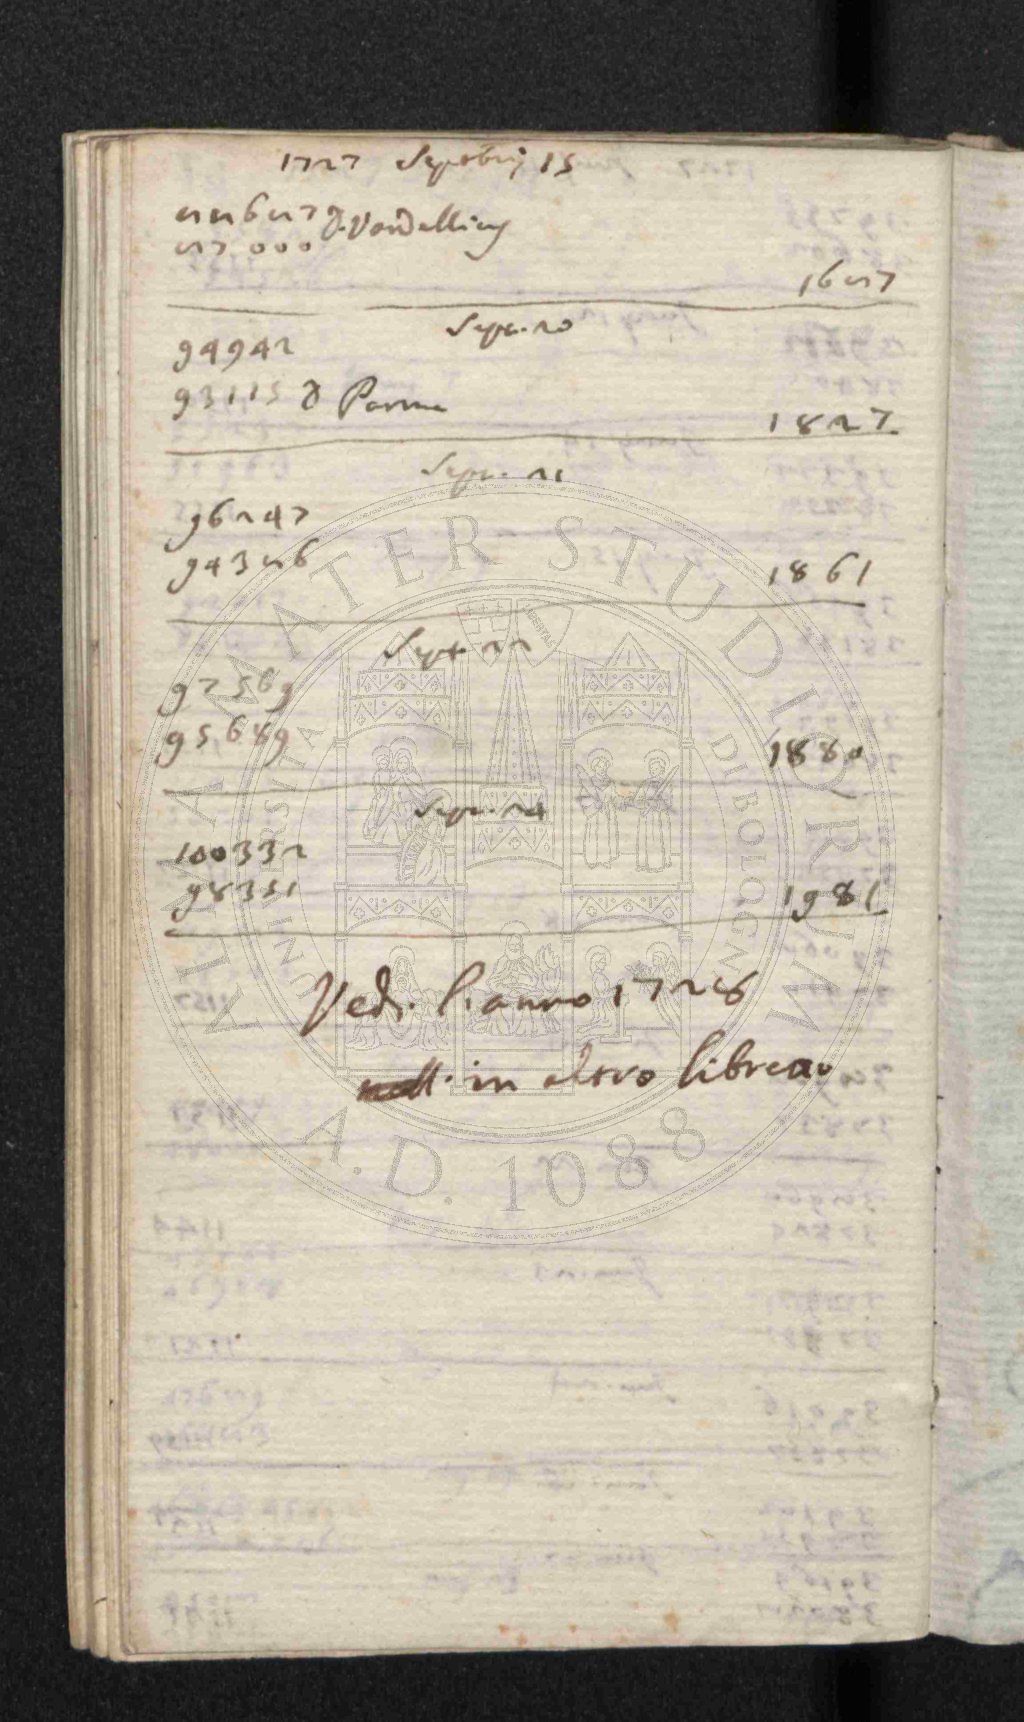 1727 Septbrij 15
22627 D. Vandellius
21000
1627
Sept. 20
94942
93115 D Parma
1827
Sept. 21
96247
94326
1861
Sept. 22
97569
95689
1880
Sept. 24
100332
98351
1981
Vedi l'anno 1728
in altro libretto
ALMA MATER STUDIORUM
UNIVERSITÀ DI BOLOGNA
A.D. 1088